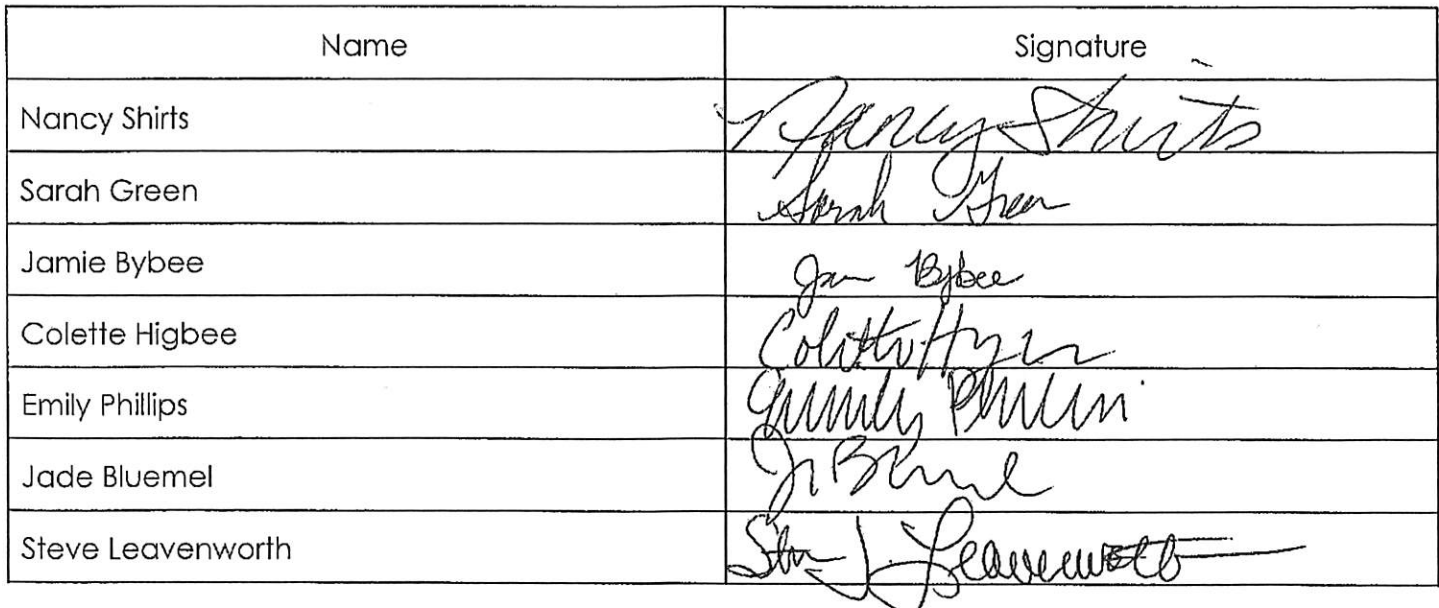 Name Signature
Nancy Shirts Nancy Shirts
Sarah Green Sarah Green
Jamie Bybee Jam Bybee
Colette Higbee Colette
Emily Phillips Emily
Jade Bluemel
Steve Leavenworth Steve J. Leavenworth